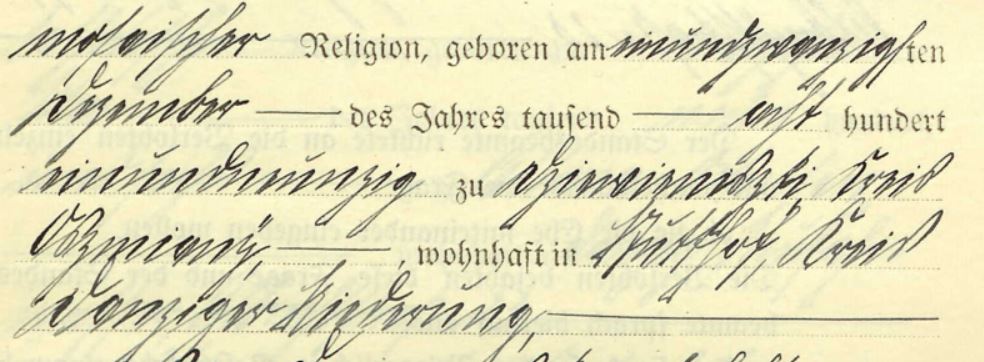 mosaischer Religion, geboren am einundzwanzigsten
Dezember — des Jahres tausend — acht hundert
einundneunzig zu Dziewieniszki, Kreis
Oszmiany, — wohnhaft in Stutthof, Kreis
Danziger Niederung, —